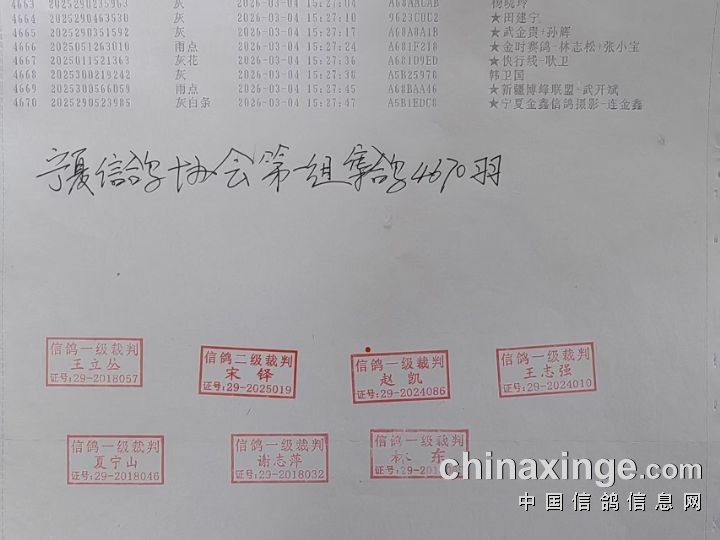 4663 2025290235963 灰 2026-03-04 15:27:04 A68AACAB 杨晓玲
4664 2025290463530 灰 2026-03-04 15:27:10 9623C0C2 ★田建宁
4665 2025290351592 灰 2026-03-04 15:27:17 A68A0A1B ★武金贵+孙辉
4666 2025051263010 雨点 2026-03-04 15:27:24 A681F218 ★金时赛鸽-林志松+张小宝
4667 2025011521363 灰花 2026-03-04 15:27:36 A681D9ED ★快行线-耿卫
4668 2025300219242 灰 2026-03-04 15:27:41 A5B25978 韩卫国
4669 2025300566059 雨点 2026-03-04 15:27:45 A68BAA46 ★新疆博峰联盟-武开斌
4670 2025290523985 灰白条 2026-03-04 15:27:47 A5B1EDC8 ★宁夏金鑫信鸽摄影-连金鑫
宁夏信鸽协会第一组集鸽4670羽
信鸽一级裁判 信鸽二级裁判 信鸽一级裁判 信鸽一级裁判
王立丛 宋铎 赵凯 王志强
证号:29-2018057 证号:29-2025019 证号:29-2024086 证号:29-2024010
信鸽一级裁判 信鸽一级裁判 信鸽一级裁判
夏宁山 谢志萍 东
证号:29-2018046 证号:29-2018032 证号:29-201
chinaxinge.com
中国信鸽信息网